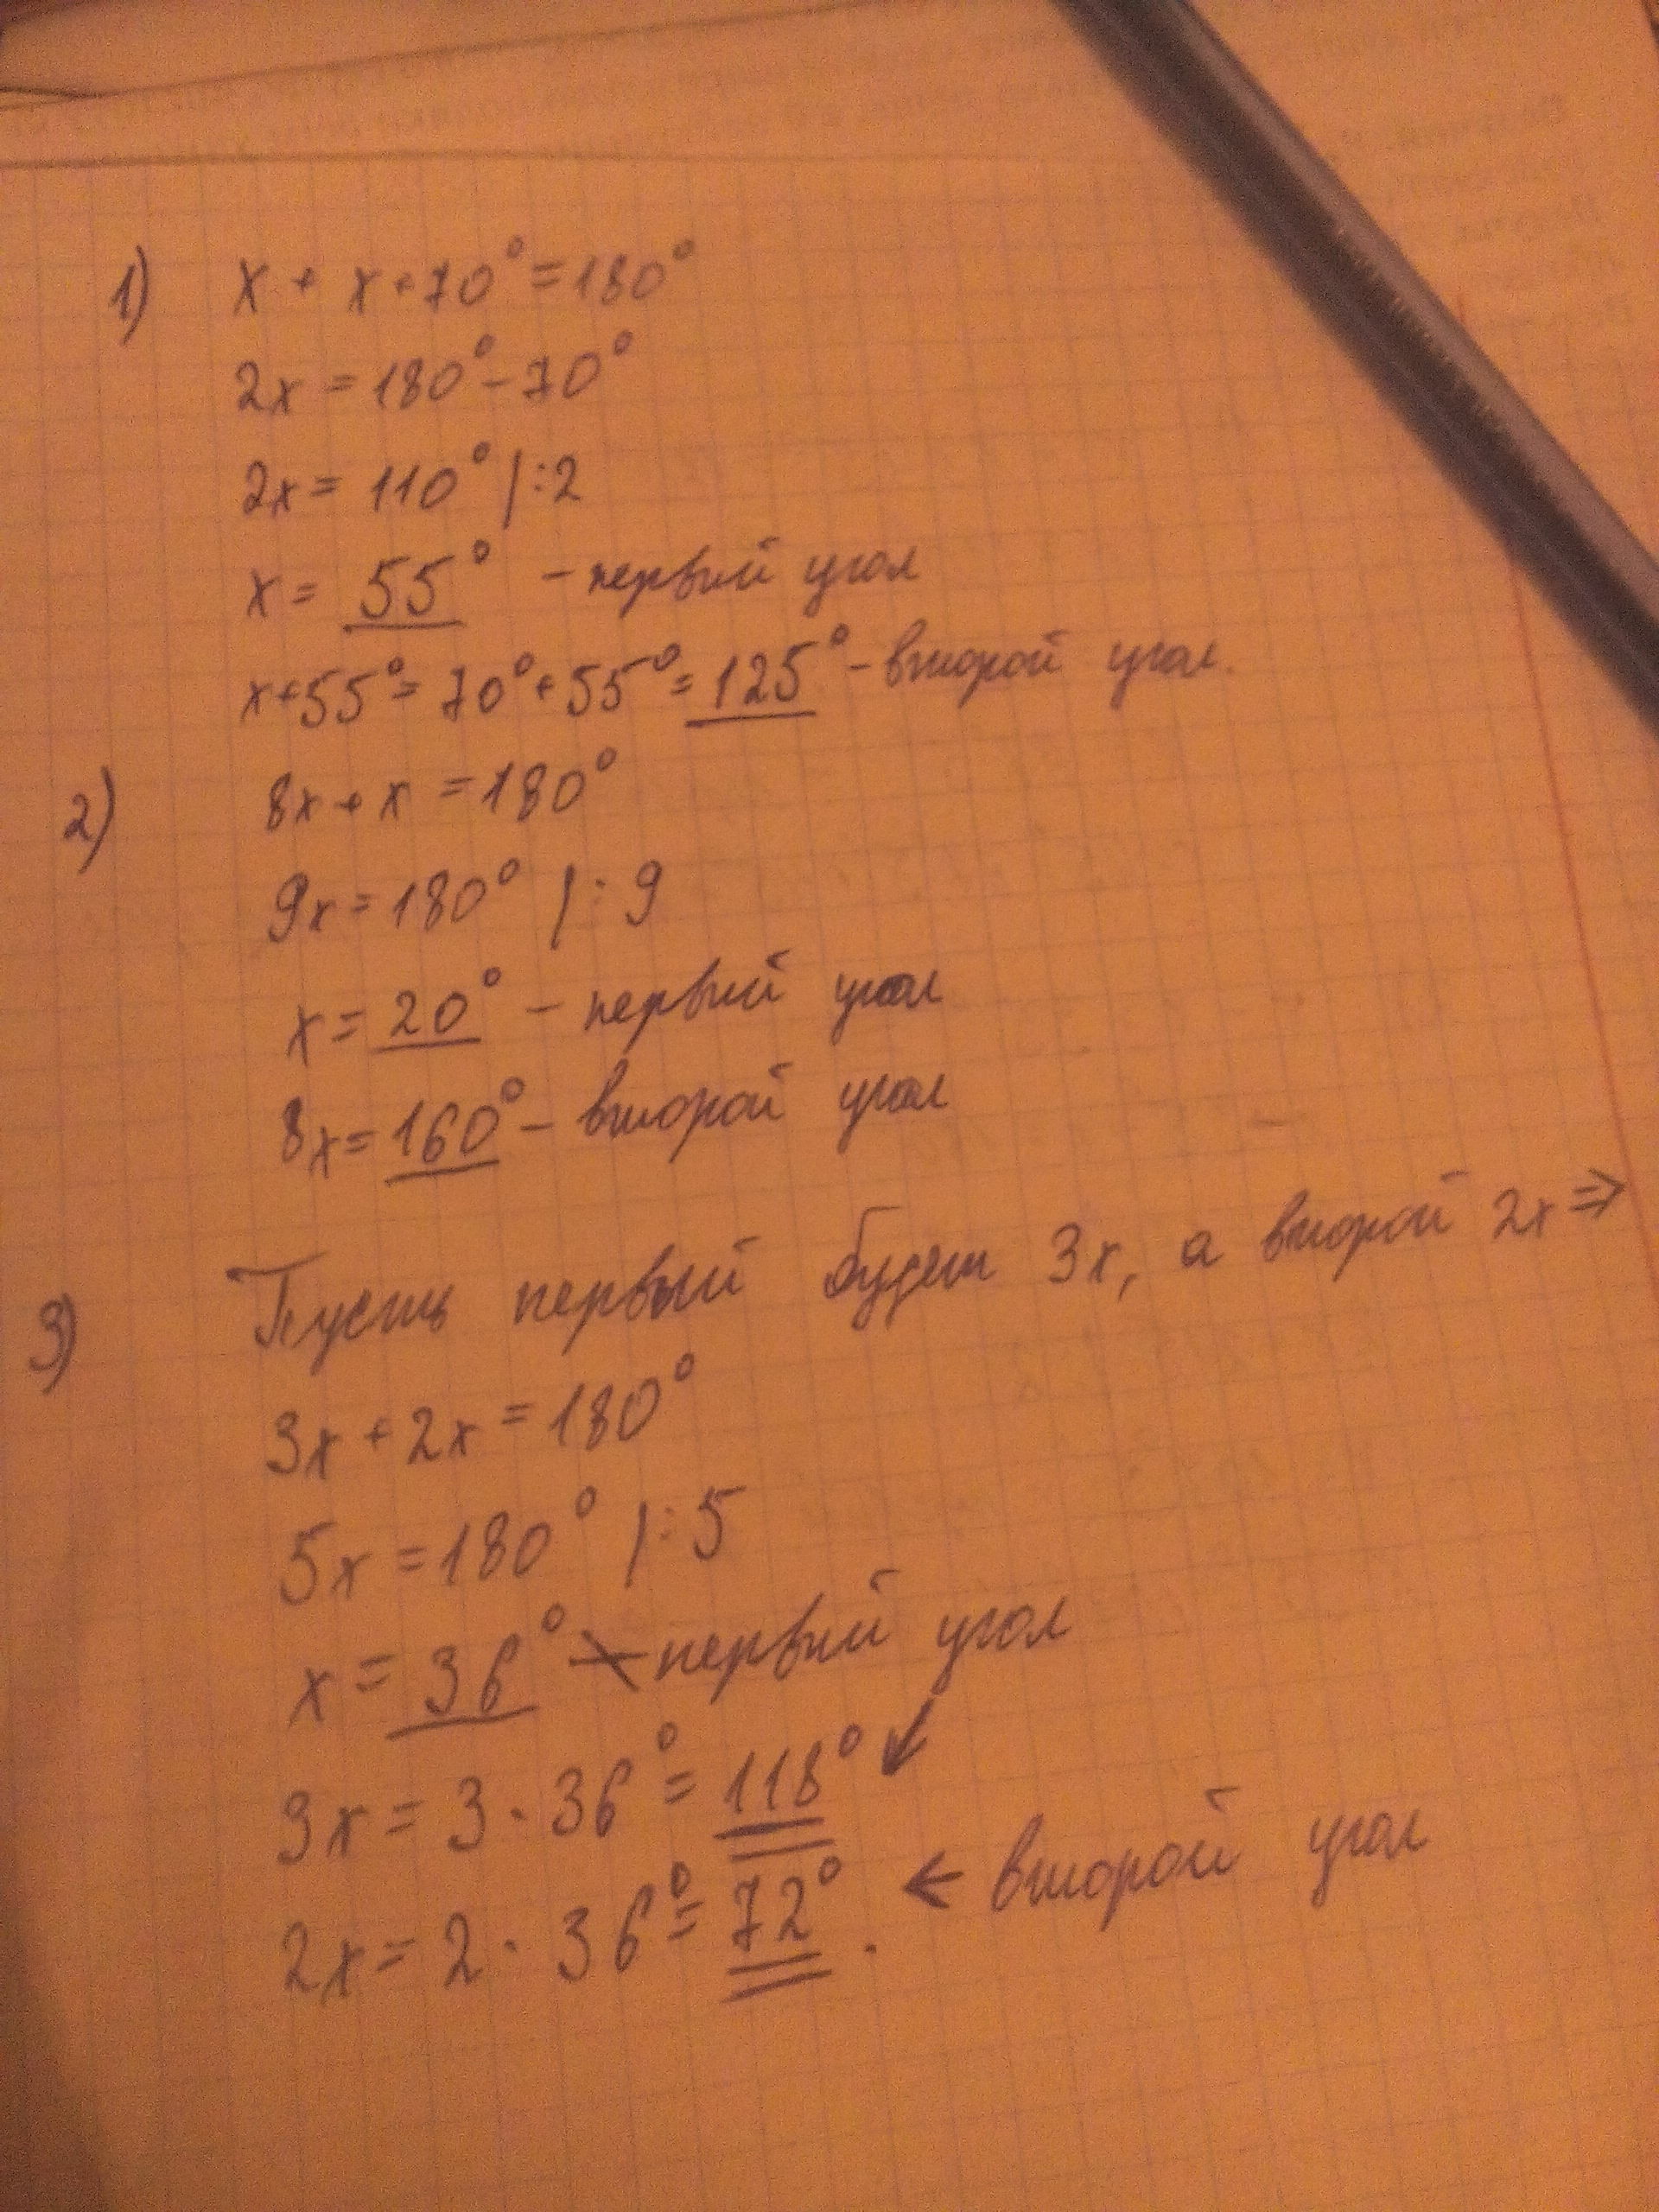 1) x + x + 70° = 180°
2x = 180° - 70°
2x = 110° |:2
x = 55° - первый угол
x+55° = 70° + 55° = 125° - второй угол.
2) 8x + x = 180°
9x = 180° |: 9
x = 20° - первый угол
8x = 160° - второй угол
3) Пусть первый будет 3x, а второй 2x ⇒
3x + 2x = 180°
5x = 180° |: 5
x = 36° первый угол
3x = 3 · 36° = 118° ↙
2x = 2 · 36° = 72°. ← второй угол